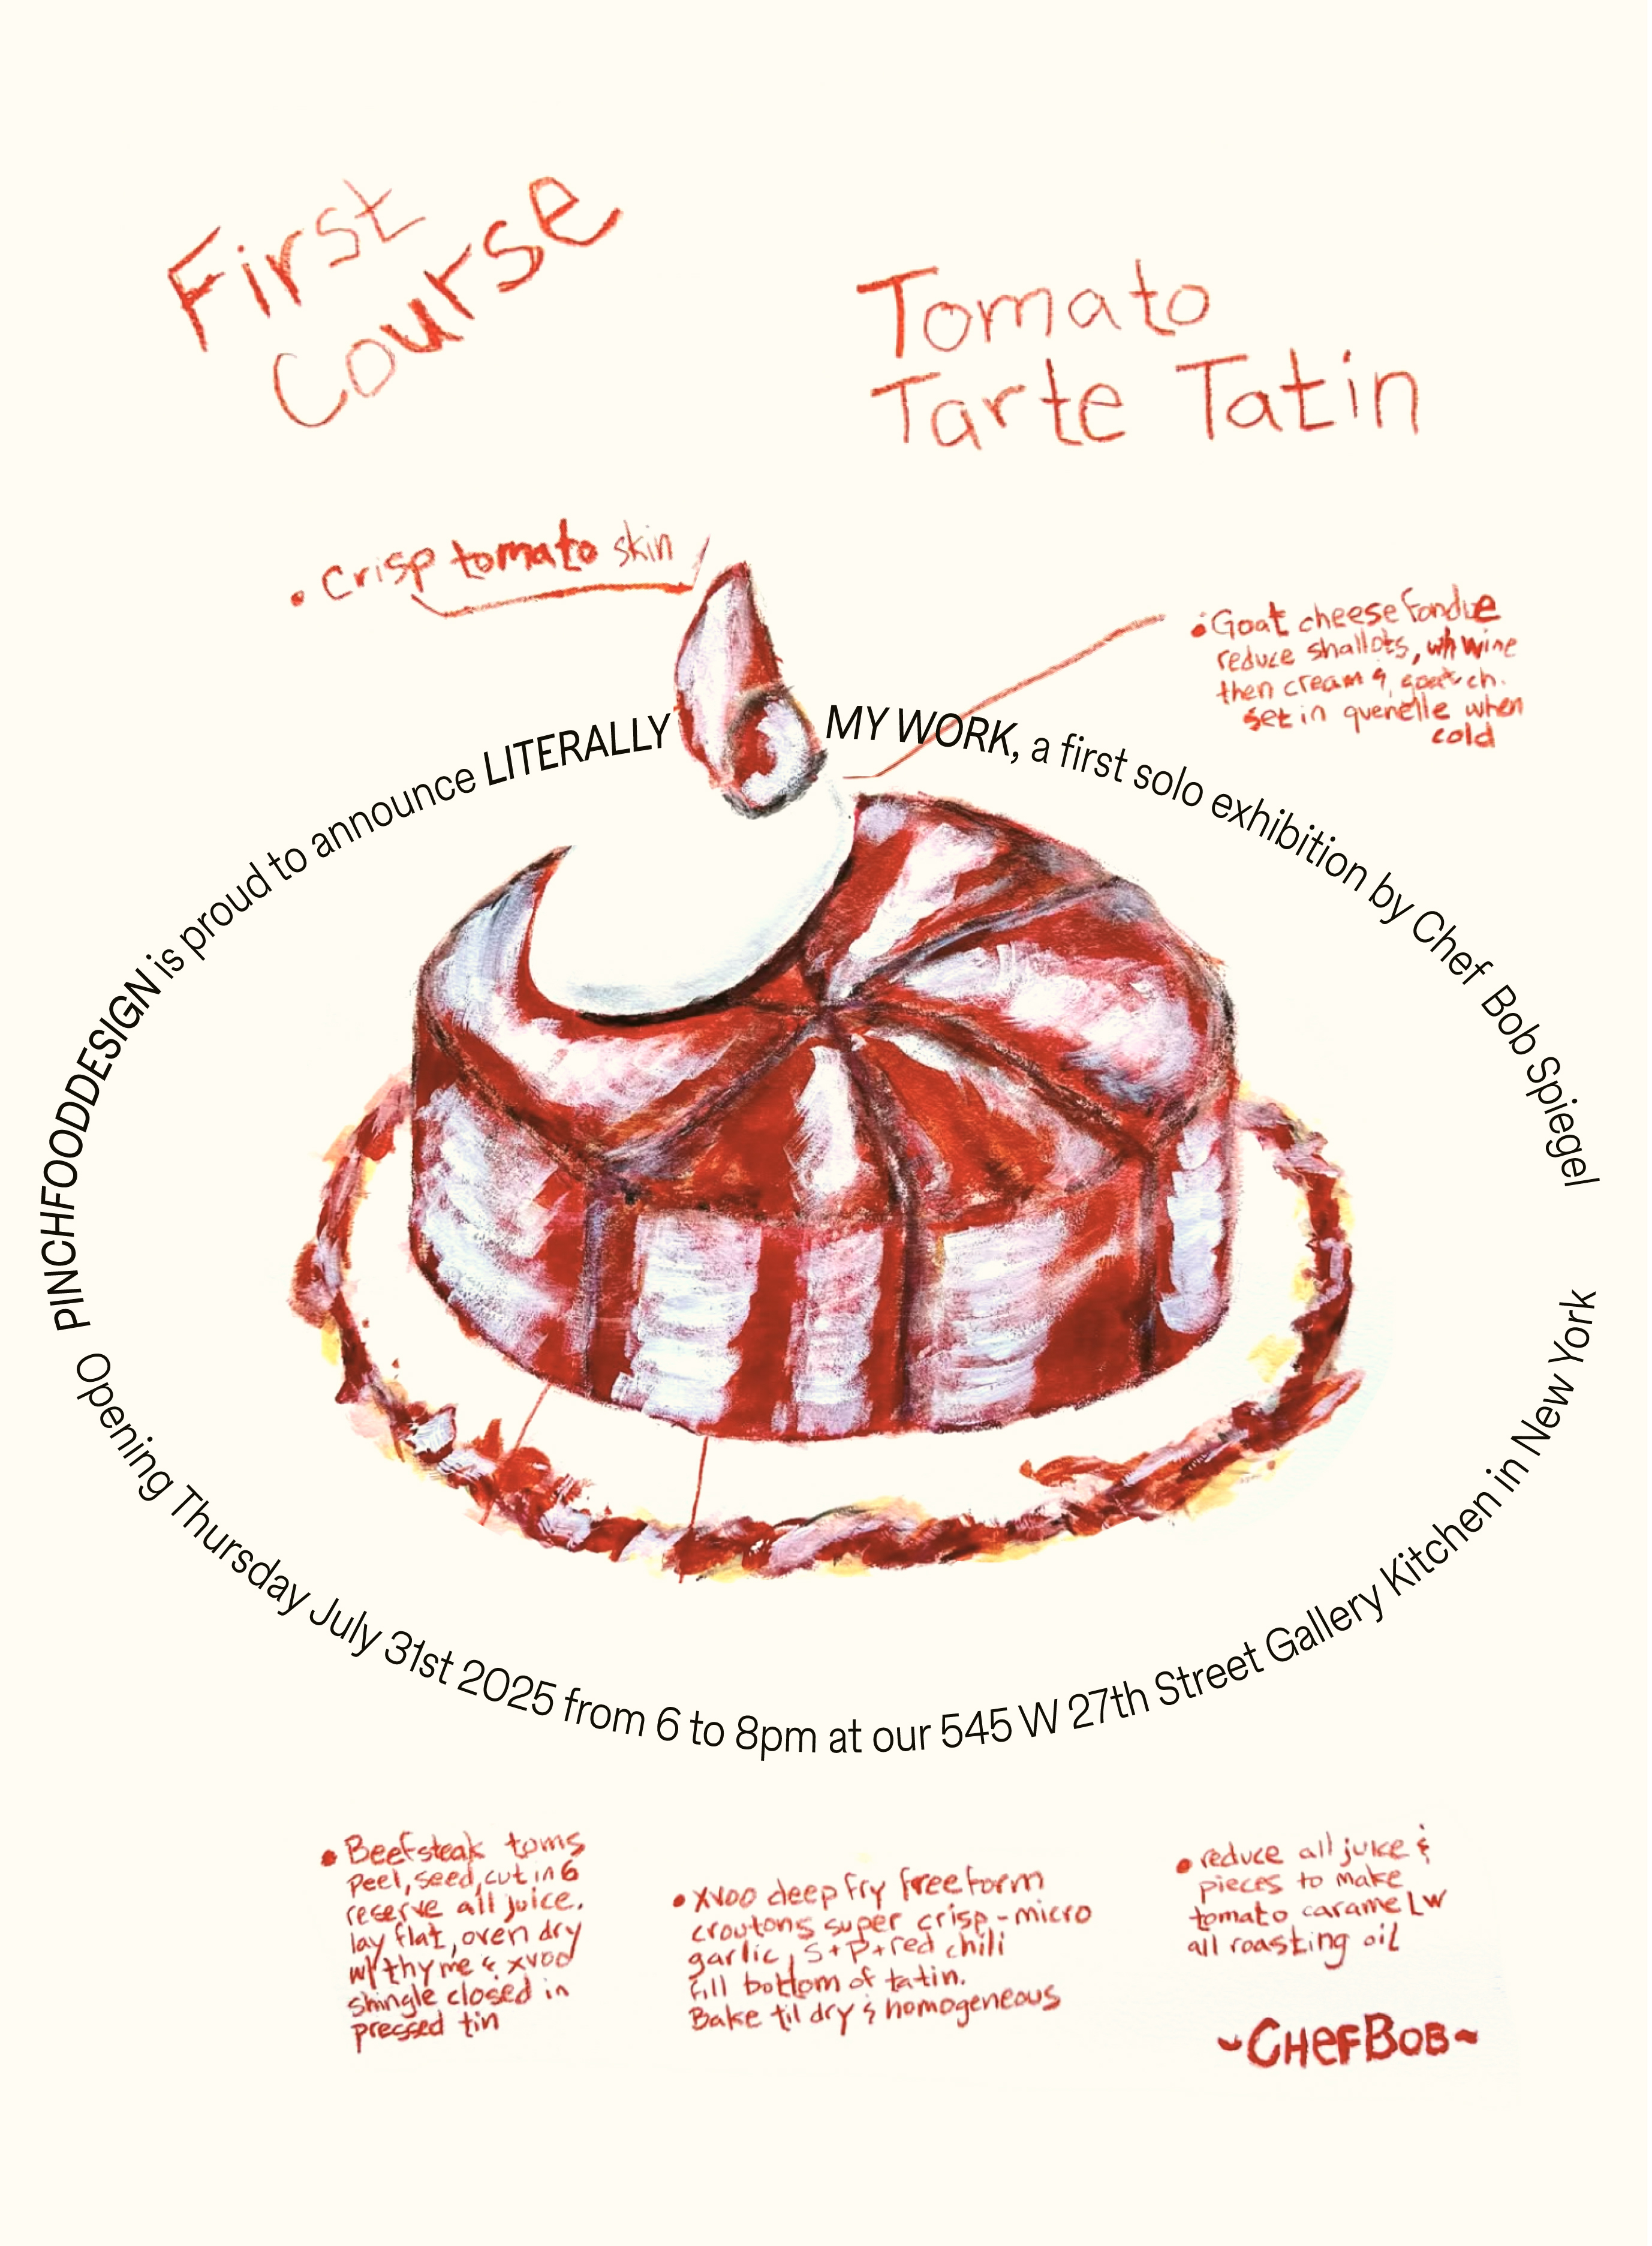 First
Course
Tomato
Tarte Tatin
• Crisp tomato skin
• Goat cheese fondue
reduce shallots, wh wine
then cream & goat ch.
set in quenelle when
cold
PINCHFOODDESIGN is proud to announce LITERALLY MY WORK, a first solo exhibition by Chef Bob Spiegel
Opening Thursday July 31st 2025 from 6 to 8pm at our 545 W 27th Street Gallery Kitchen in New York
• Beefsteak toms
Peel, seed, cut in 6
reserve all juice.
lay flat, oven dry
w/ thyme & xvoo
shingle closed in
pressed tin
• xvoo deep fry freeform
croutons super crisp - micro
garlic, S+P+red chili
fill bottom of tatin.
Bake til dry & homogeneous
• reduce all juice &
pieces to make
tomato caramel w
all roasting oil
~CHEFBOB~